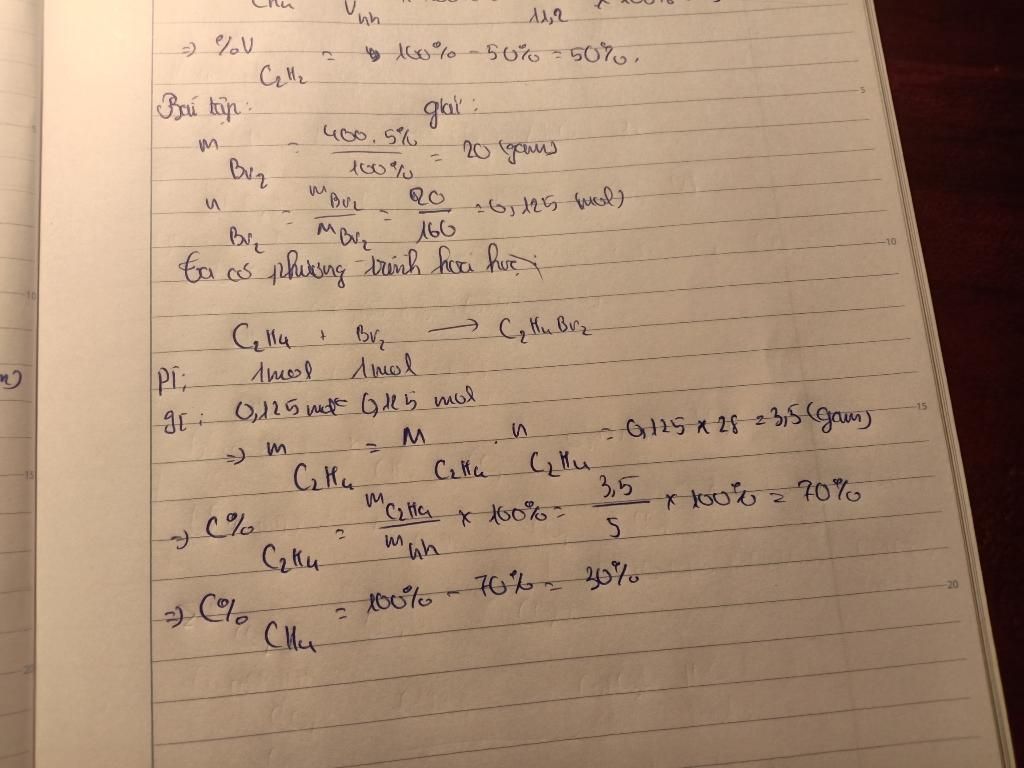 11,2
=> %V C2H2 = 100% - 50% = 50%.
Bài tập: giải:
m Br2 = 400.5% / 100% = 20 (gam)
n Br2 = mBr2 / MBr2 = 20 / 160 = 0,125 (mol)
Ta có phương trình hóa học:
C2H4 + Br2 → C2H4Br2
PT: 1mol 1mol
gt: 0,125 mol 0,125 mol
=> m C2H4 = M C2H4 . n C2H4 = 0,125 x 28 = 3,5 (gam)
=> C% C2H4 = mC2H4 / mhh x 100% = 3,5 / 5 x 100% = 70%
=> C% CH4 = 100% - 70% = 30%